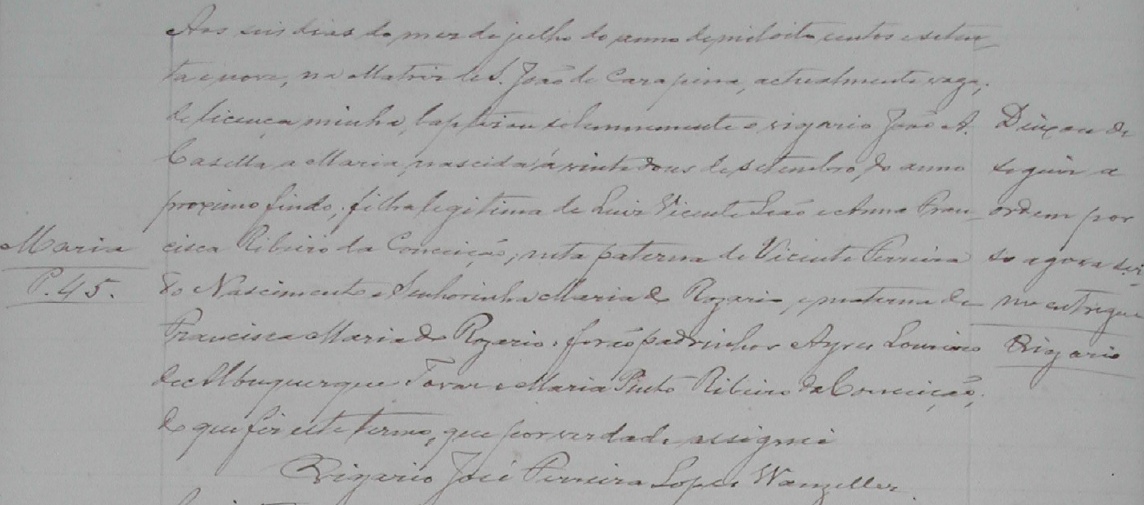 Aos seis dias do mez de julho do anno de mil oito centos e seten
ta e nove, na Matriz de S. João de Carapina, actualmente vaga,
de licença minha, baptisou solemnemente o vigario João A.
Casella a Maria, nascida á vinte dous de setembro, do anno
proximo findo, filha legitima de Luiz Vicente Leão e Anna Fran
cisca Ribeiro da Conceição, neta paterna de Vicente Pereira
do Nascimento e Senhorinha Maria do Rozario, e materna de
Francisca Maria do Rozario. forão padrinhos Ayres Loureiro
de Albuquerque Tovar e Maria Pinto Ribeiro da Conceição,
do que fiz este termo, que por verdade assignei
Vigario José Pereira Lopes Wanzeller.
Maria
P. 45.
Deixou de
seguir a
ordem por
so agora ser
me entregue
Vigario